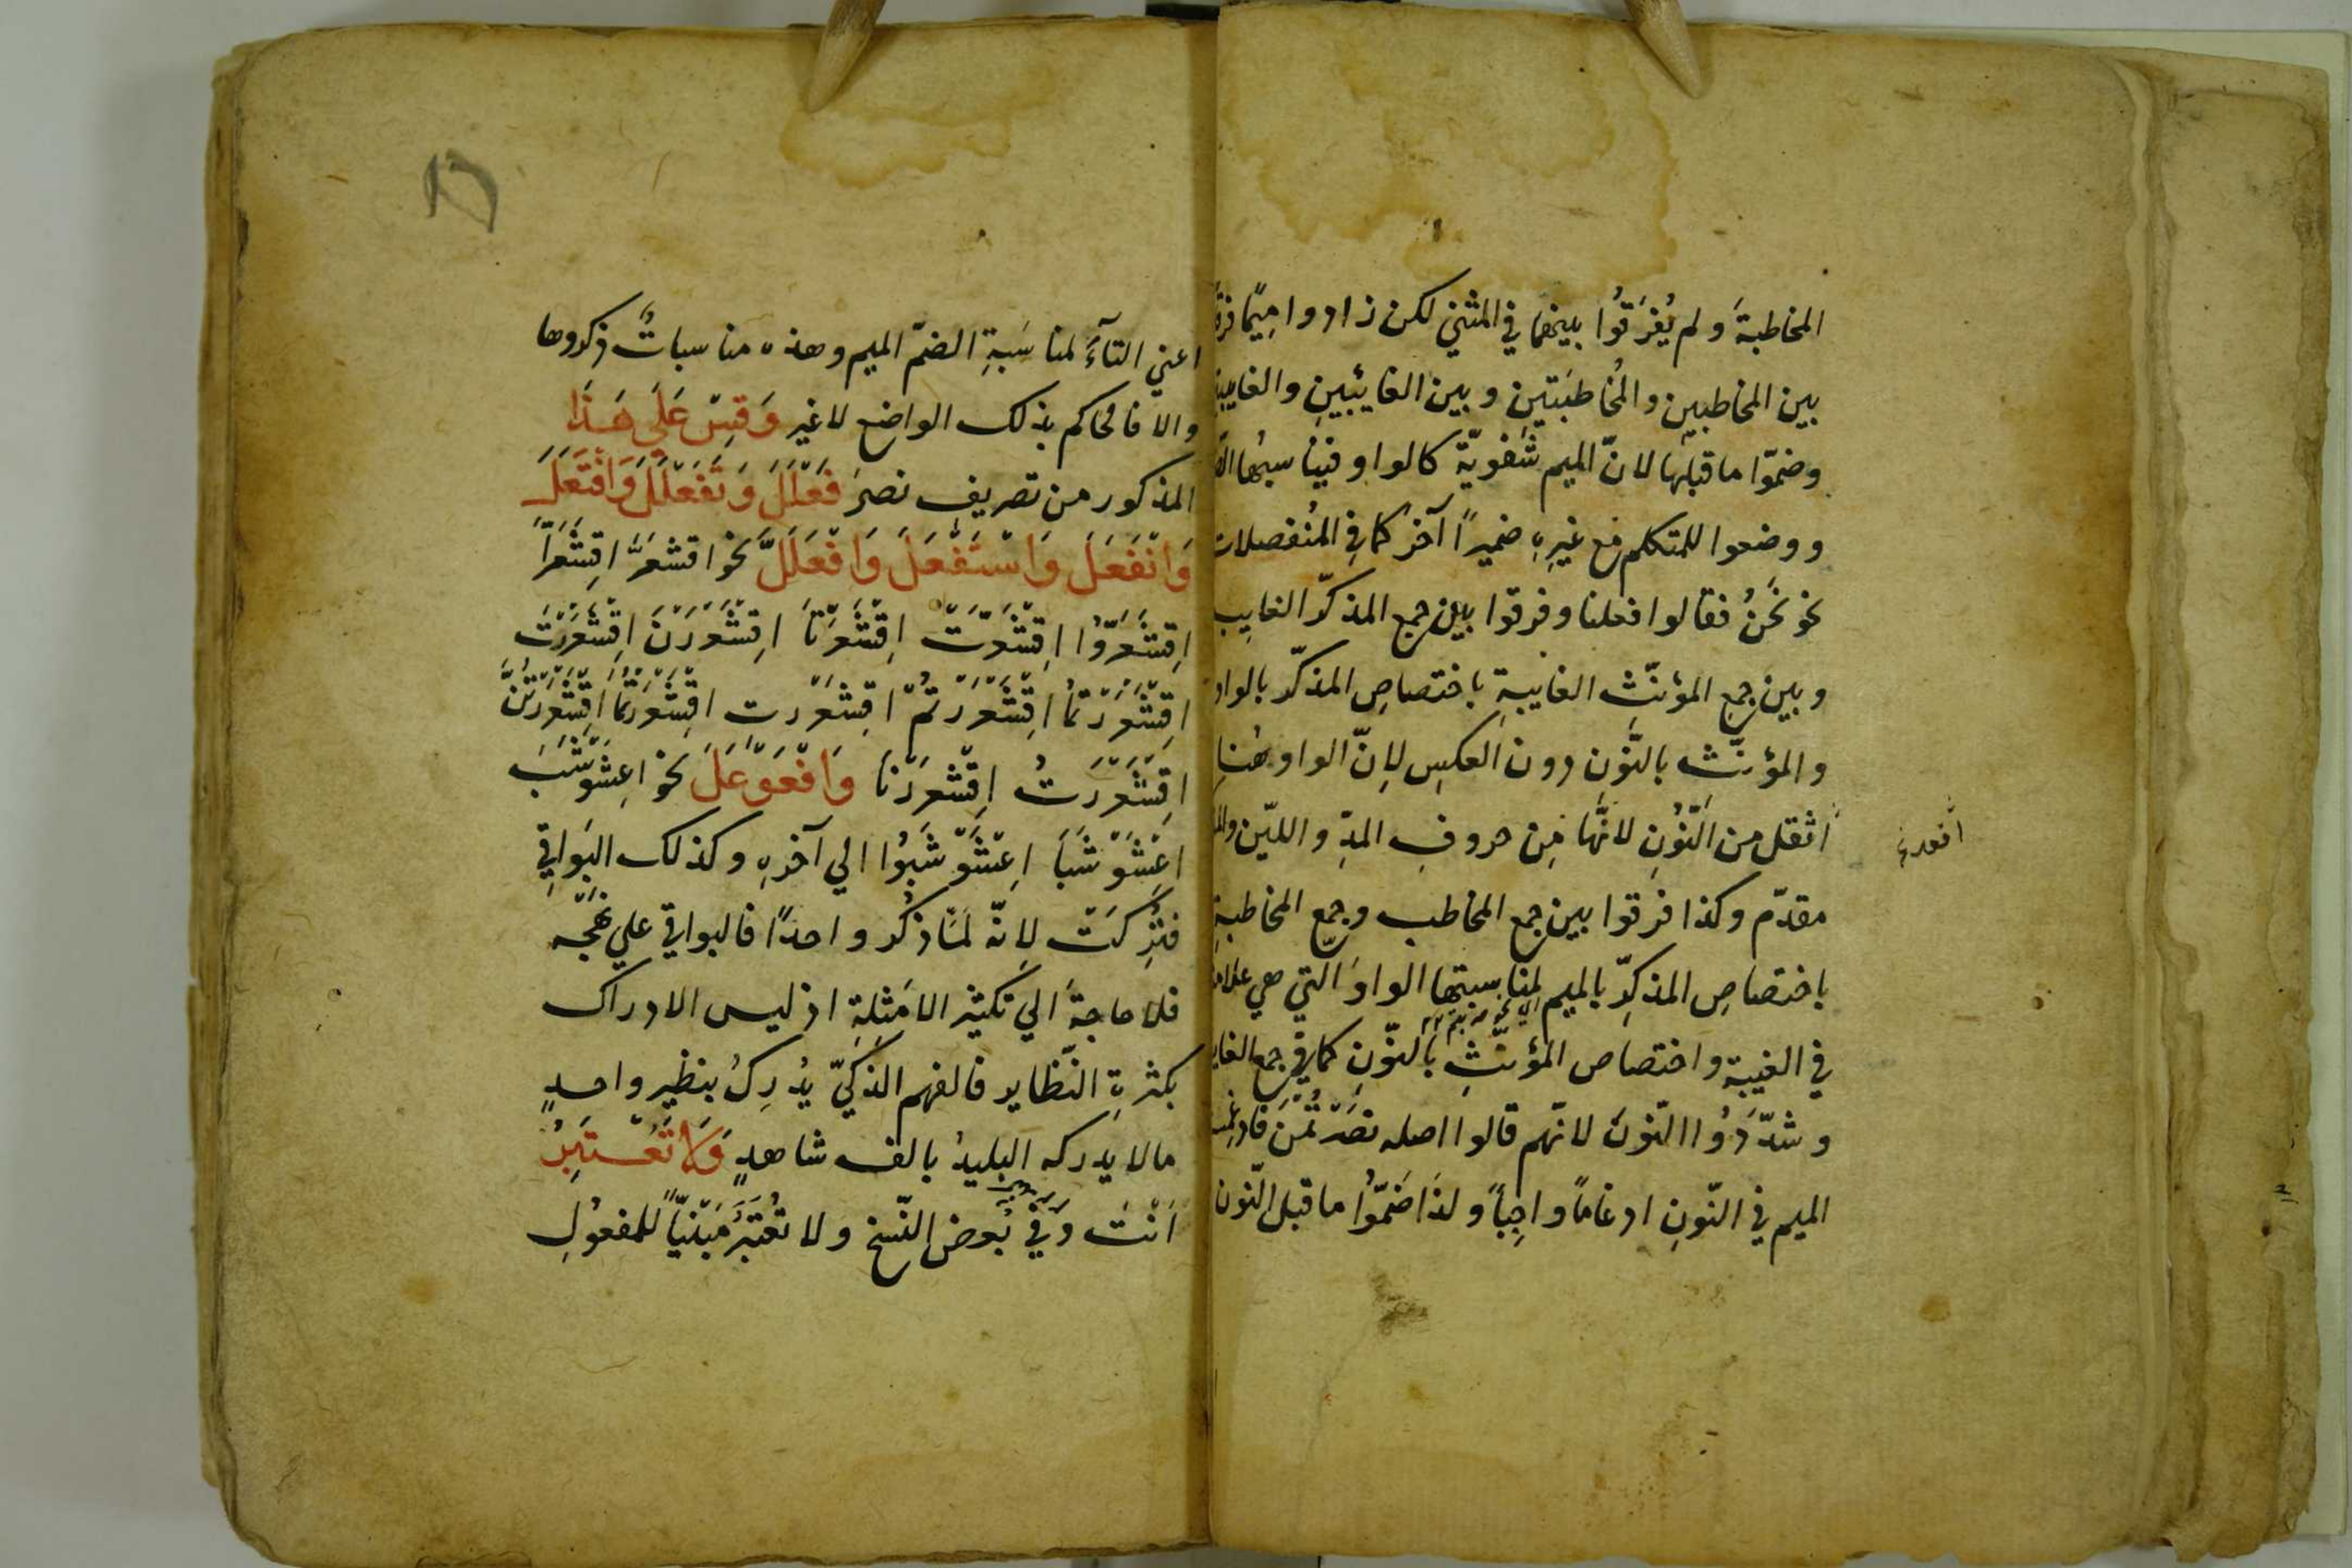 المخاطبةَ ولم يُفرّقُوا بينهما في المثنى لكن زادوا مِيمًا فرقًا
بين المخاطبين والمُخاطبَتينِ وبين الغايبَينِ والغايبتين
وضمّوا ما قبلها لانّ الميم شفَويّة كالواو فيناسبُها
ووضعوا للمتكلم مع غيرِهِ ضميرًا آخر كما في المُنفصلات
نحو نَحْنُ فقالوا فعلنا وفرقوا بين جمع المذكّر الغايب
وبين جمع المؤنّثِ الغايبةِ باختصاصِ المذكّر بالواو
والمؤنّث بالنُّونِ دون العكسِ لِانّ الواو هُنا
اثقل من النُّونِ لانّها مِن حروفِ المدّ واللين
مقدّم وكذا فرقوا بين جمع المخاطب وجمع المخاطبةِ
باختصاصِ المذكرّ بالميم لمناسبتها الواوَ التي هي علامة
في الغيبة واختصاص المؤنّثِ بالنّونِ كما في جمع الغايبة
وشدّدُوا النّونَ لانّهم قالوا اصله نصَرْتُمْنَ فادغمت
الميم في النّونِ ادغامًا واجِبًا ولذَا ضَمّوُا ما قبل النّون
اعني التآءَ لمناسَبةِ الضمّ الميم وهذه مناسباتٌ ذكروها
والا فالحاكم بذلك الواضع لا غير وَقِسْ عَلَى هَذَا
المذكور من تصريف نصرَ فَعْلَلَ وَتَفَعْلَلَ وَافْتَعَلَ
وَانْفَعَلَ وَاسْتَفْعَلَ وَافْعَلَلَّ نحو اقشعَرَّ اقِشَعَرَّا
اِقشَعَرّوُا اِقشَعَرّتْ اِقشَعَرّتَا اِقشَعْرَرْنَ اِقشَعْرَرْتَ
اِقشَعْرَرْتُمَا اِقشَعْرَرْتُمْ اِقشَعْرَرْتِ اقشَعْرَرْتُمَا اِقشَعْرَرْتُنَّ
اِقشَعْرَرْتُ اِقشَعْرَرْنَا وَافْعَوْعَلَ نحو اعِشَوْشَبَ
اعِشَوْشَبَا اعِشَوْشَبُوا الي آخرهِ وكذلك البَواقي
فتُرِكَتْ لِانّه لمّا ذكُر واحدًا فالبواقي علي نهجه
فلا حاجةَ الي تكثير الامْثِلةِ اذ ليس الادراك
بكثرةِ النّظاير فالفهم الذكيّ يُدرِكُ بنظيرٍ واحدٍ
ما لا يدركه البليدُ بالف شاهدٍ وَلَا تَعْتَبِرْ
اَنْتَ وَفي بَعض النّسخ ولا تُعْتَبَرُ مَبْنيّاً للمفعُولِ